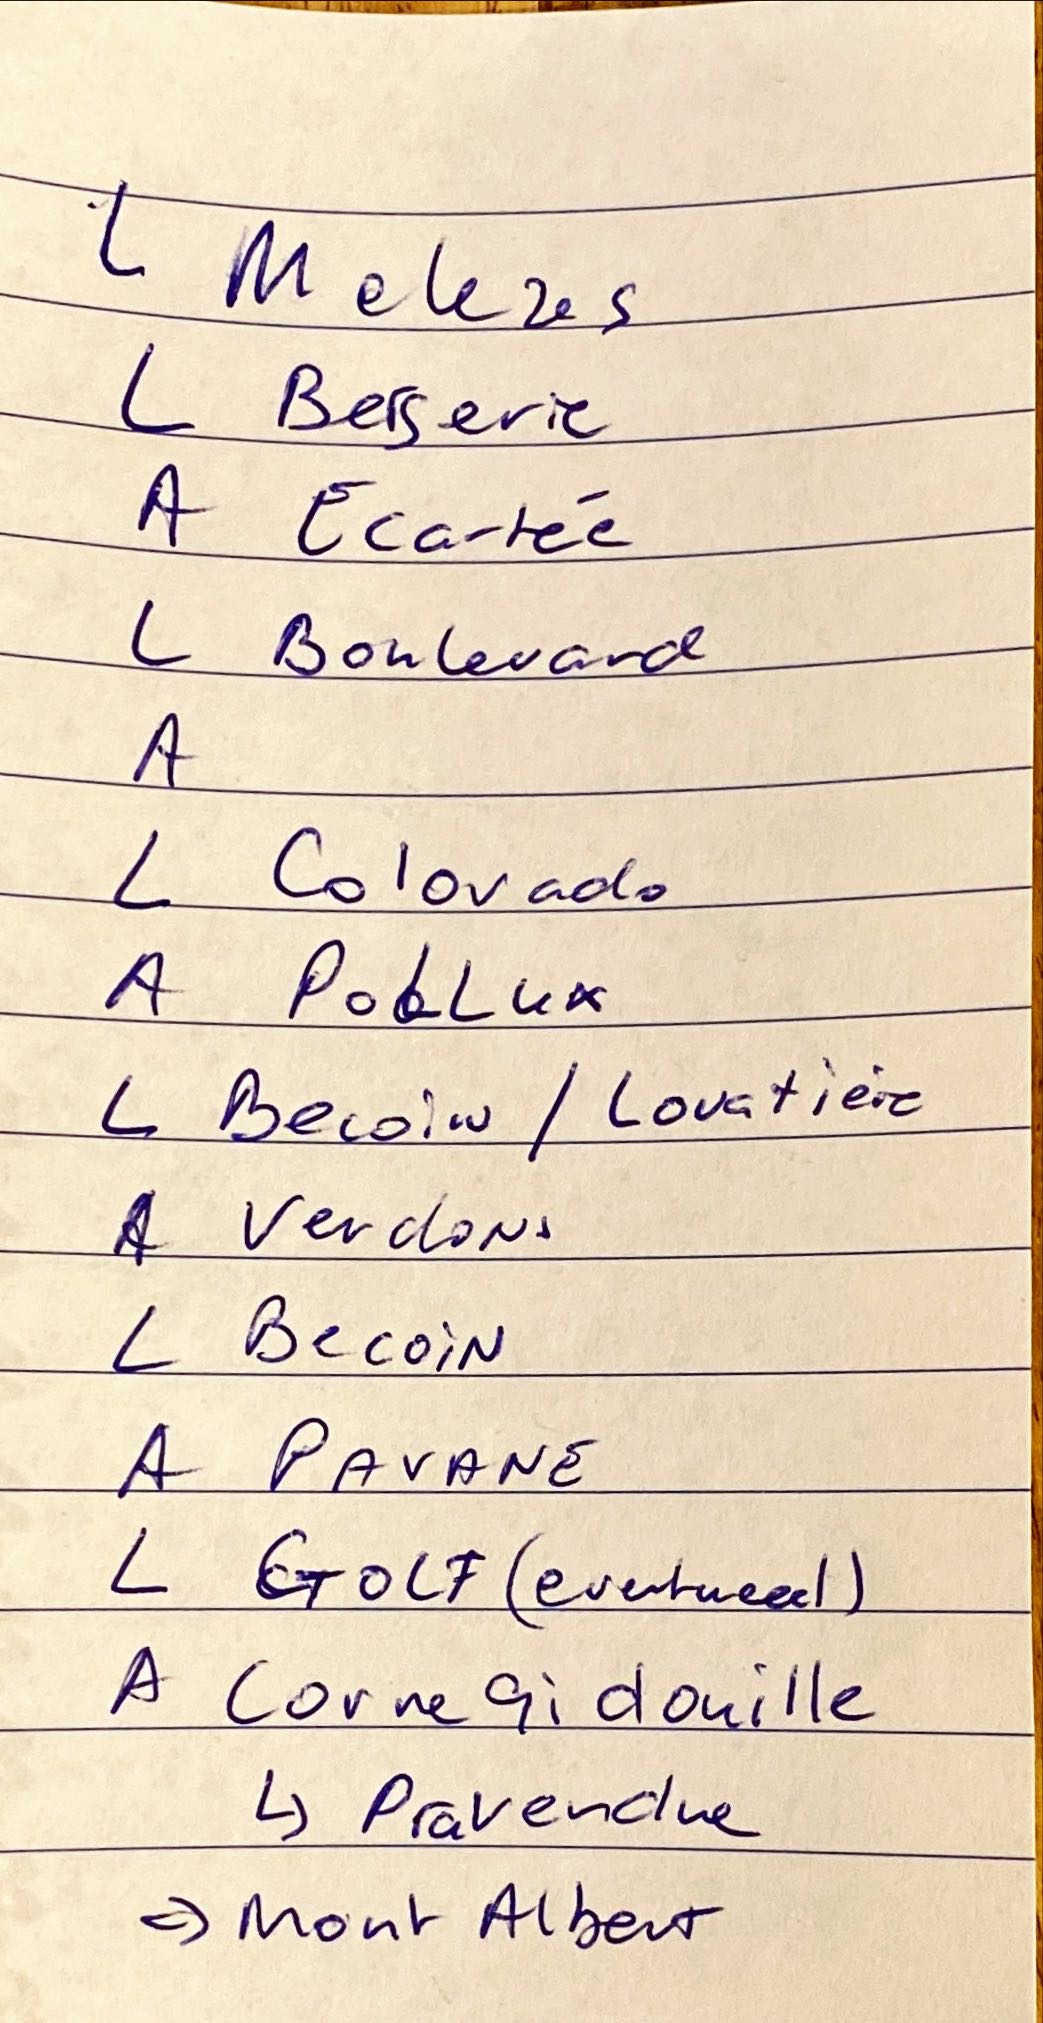 L Melezes
L Bergerie
A Ecartée
L Boulevard
A
L Colorado
A Pollux
L Becoin / Lovatière
A Verdons
L Becoin
A PAVANE
L GOLF (eventueel)
A Cornegidouille
↳ Pravendue
⇒ Mont Albert